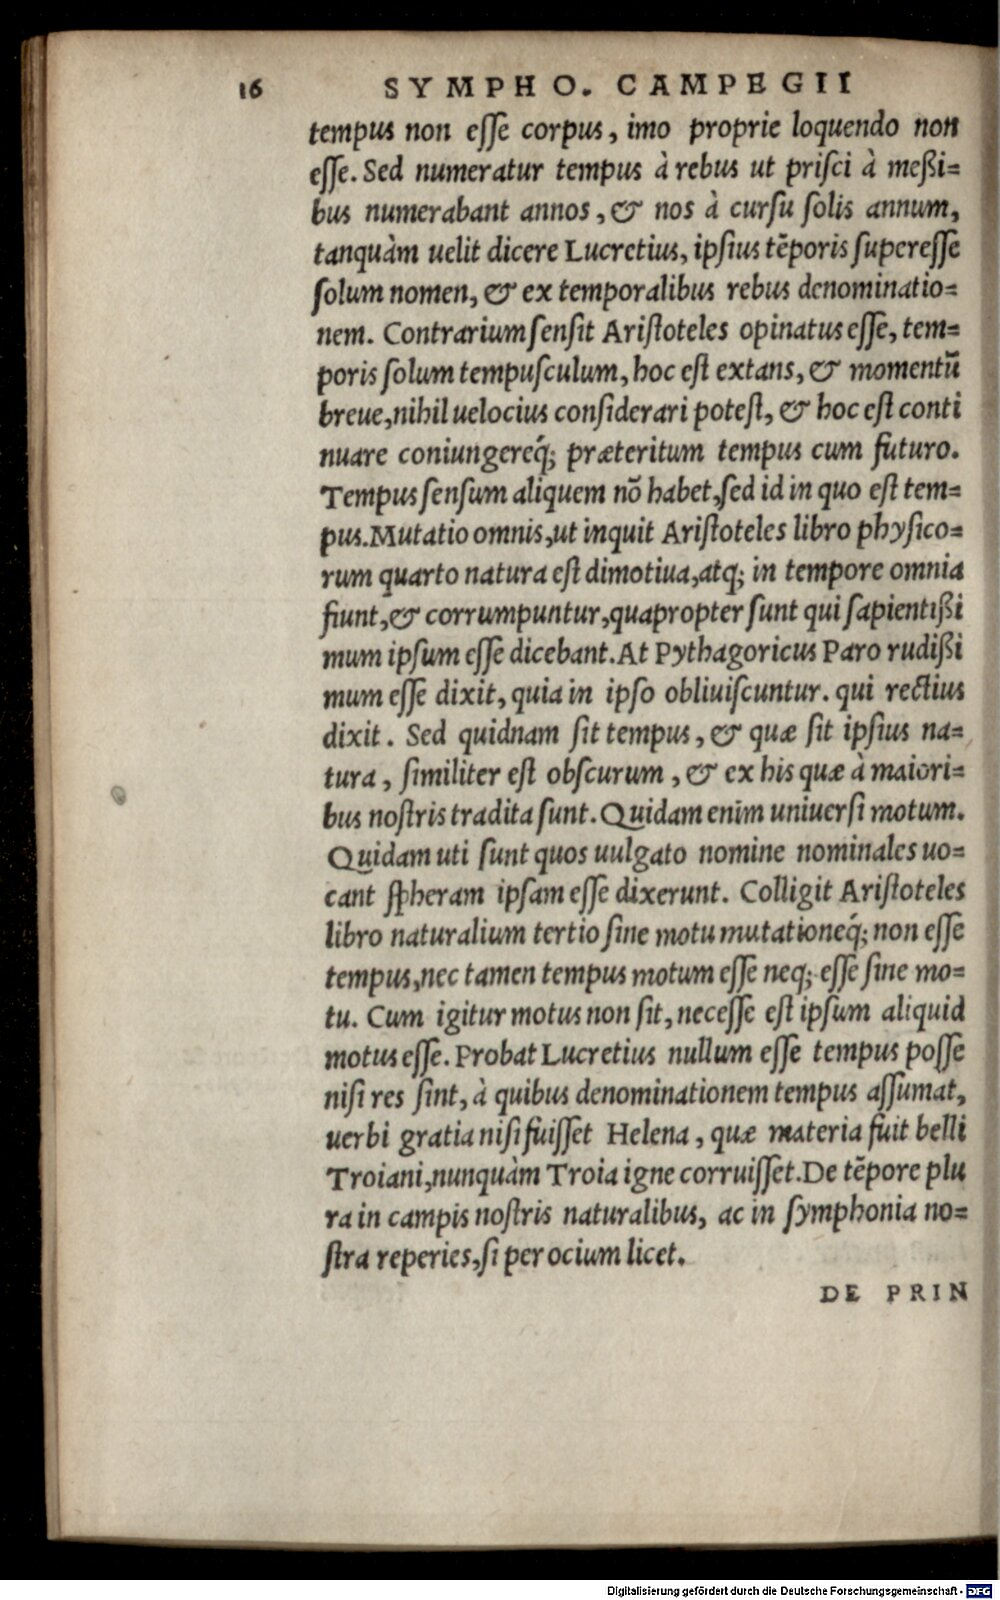 16 SYMPHO. CAMPEGII
tempus non esse corpus, imo proprie loquendo non
esse. Sed numeratur tempus à rebus ut prisci à meßi=
bus numerabant annos, & nos à cursu solis annum,
tanquàm uelit dicere Lucretius, ipsius tēporis superesse
solum nomen, & ex temporalibus rebus denominatio=
nem. Contrarium sensit Aristoteles opinatus esse, tem=
poris solum tempusculum, hoc est extans, & momentū
breue, nihil uelocius considerari potest, & hoc est conti
nuare coniungereq́; præteritum tempus cum futuro.
Tempus sensum aliquem nō habet, sed id in quo est tem=
pus. Mutatio omnis, ut inquit Aristoteles libro physico=
rum quarto natura est dimotiua, atq; in tempore omnia
fiunt, & corrumpuntur, quapropter sunt qui sapientißi
mum ipsum esse dicebant. At Pythagoricus Paro rudißi
mum esse dixit, quia in ipso obliuiscuntur. qui rectius
dixit. Sed quidnam sit tempus, & quæ sit ipsius na=
tura, similiter est obscurum, & ex his quæ à maiori=
bus nostris tradita sunt. Quidam enim uniuersi motum.
Quidam uti sunt quos uulgato nomine nominales uo=
cant spheram ipsam esse dixerunt. Colligit Aristoteles
libro naturalium tertio sine motu mutationeq́; non esse
tempus, nec tamen tempus motum esse neq; esse sine mo=
tu. Cum igitur motus non sit, necesse est ipsum aliquid
motus esse. Probat Lucretius nullum esse tempus posse
nisi res sint, à quibus denominationem tempus assumat,
uerbi gratia nisi fuisset Helena, quæ materia fuit belli
Troiani, nunquàm Troia igne corruisset. De tēpore plu
ra in campis nostris naturalibus, ac in symphonia no=
stra reperies, si per ocium licet.
DE PRIN
Digitalisierung gefördert durch die Deutsche Forschungsgemeinschaft - DFG